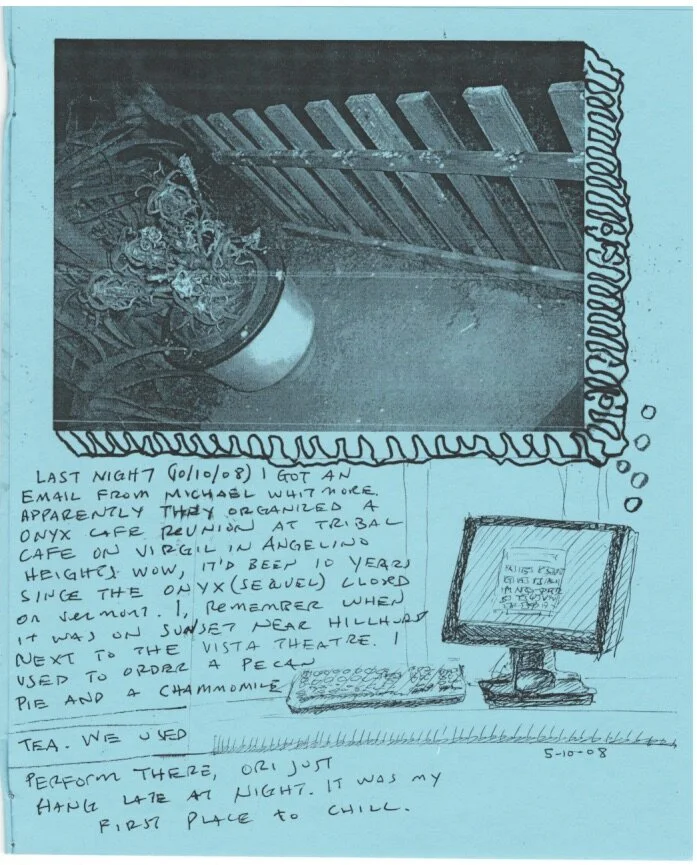 LAST NIGHT (10/10/08) I GOT AN
EMAIL FROM MICHAEL WHITMORE.
APPARENTLY THEY ORGANIZED A
ONYX CAFE REUNION AT TRIBAL
CAFE ON VIRGIL IN ANGELINO
HEIGHTS. WOW, IT'D BEEN 10 YEARS
SINCE THE ONYX (SEQUEL) CLOSED
ON VERMONT. I REMEMBER WHEN
IT WAS ON SUNSET NEAR HILLHURST
NEXT TO THE VISTA THEATRE. I
USED TO ORDER A PECAN
PIE AND A CHAMMOMILE
TEA. WE USED
5-10-08
PERFORM THERE, OR I JUST
HANG LATE AT NIGHT. IT WAS MY
FIRST PLACE TO CHILL.